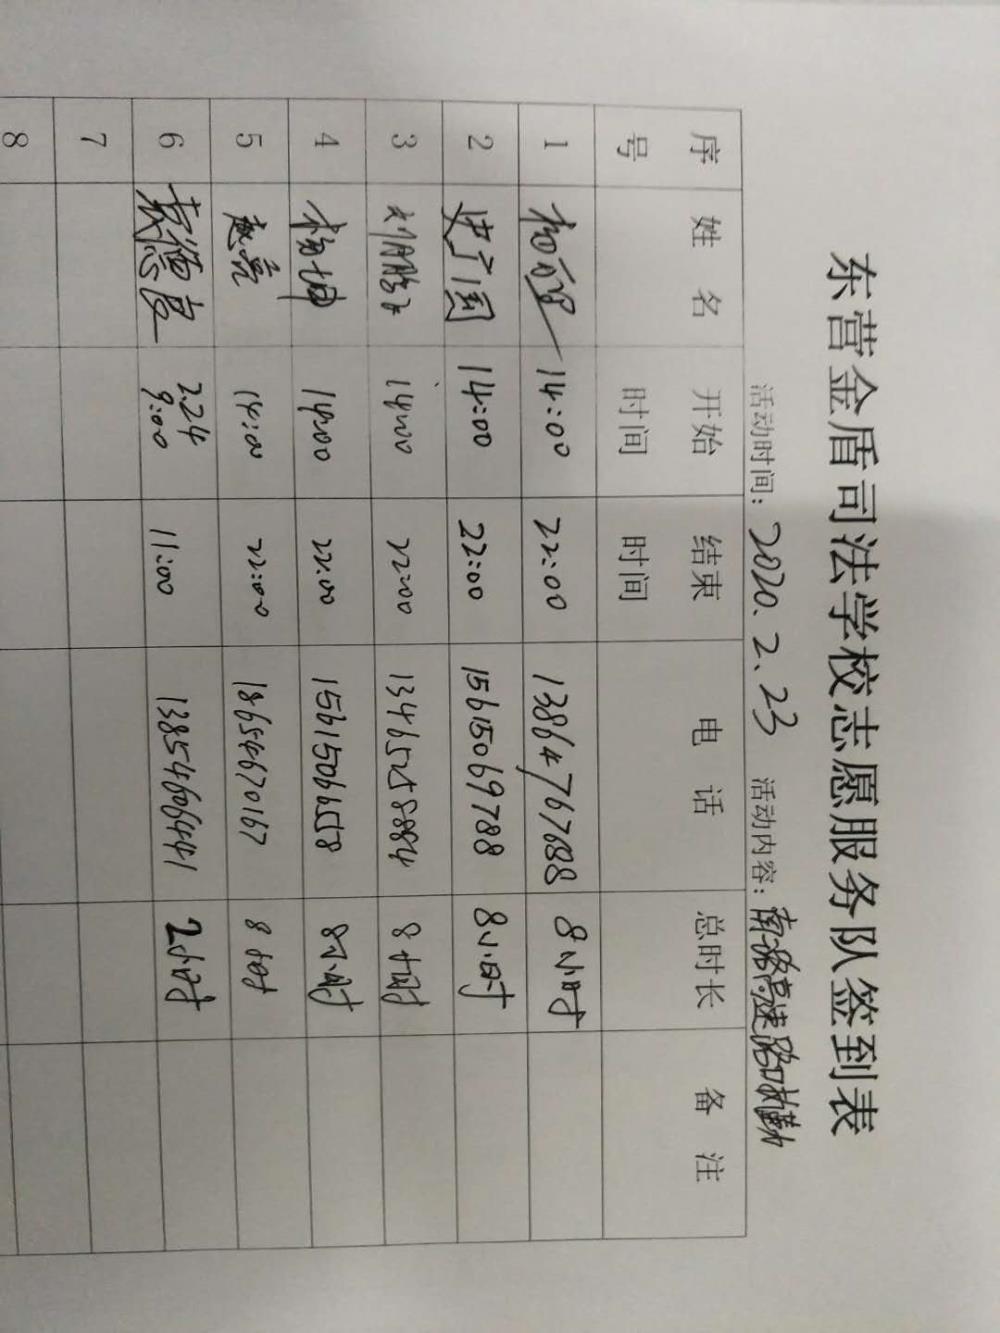 东营金盾司法学校志愿服务队签到表
活动时间：2020.2.23 活动内容：南二路高速路口执勤
序号 姓名 开始时间 结束时间 电话 总时长 备注
1 14:00 22:00 13864767688 8小时
2 史广国 14:00 22:00 15615069788 8小时
3 刘胜 14:00 22:00 13465258884 8小时
4 杨坤 14:00 22:00 15615066558 8小时
5 赵亮 14:00 22:00 18654670167 8小时
6 袁德良 2.24 9:00 11:00 13854606441 2小时
7
8